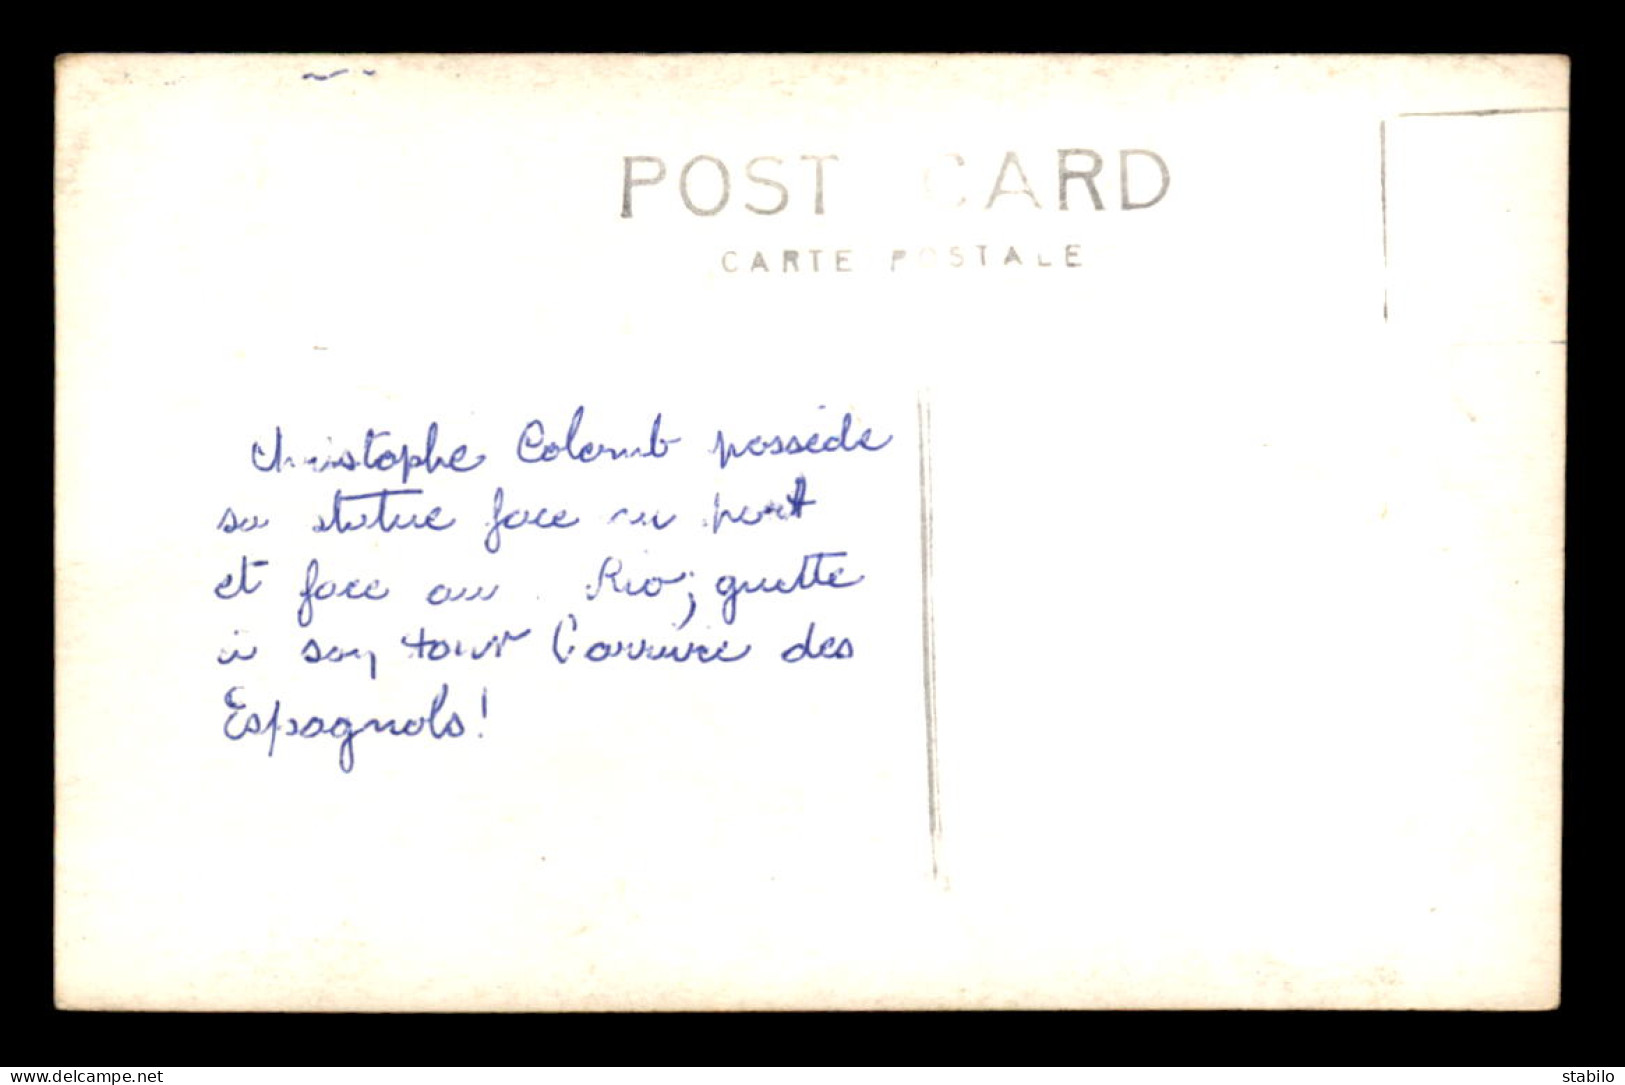 POST CARD
CARTE POSTALE
Christophe Colomb possède
sa statue face au port
et face au Rio, guette
à son tour l'arrivée des
Espagnols!
www.delcampe.net
stabilo